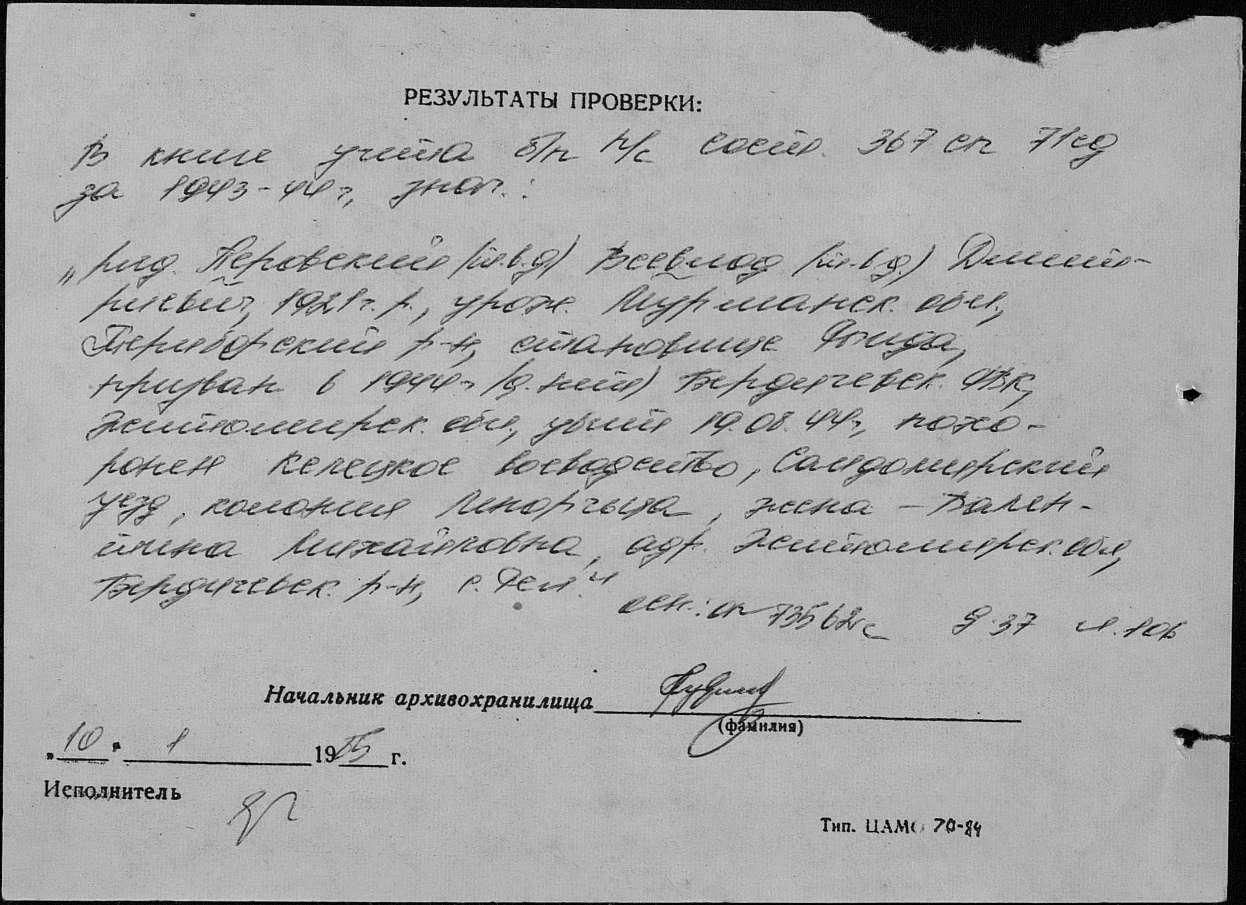 РЕЗУЛЬТАТЫ ПРОВЕРКИ:
В книге учета б/п н/с сост. 367 сп 71 сд
за 1943-44 г, знач.:
"ряд. Перовский (т.в.д) Всевлод (т.в.д.) Дмит-
риевич, 1921 г.р., урож. Мурманск. обл,
Териборский р-н, становище
призван в 1944 г (д. нет) Бердичевск. РВК,
Житомирск. обл, убит 19.08.44 г, похо-
ронен Келецкое воеводство, Сандомирский
уезд, колония, жена – Вален-
тина Михайловна, адр. Житомирск. обл,
Бердичевск. р-н, с.
осн.: оп 73562 с д. 37 л. 106
Начальник архивохранилища
(фамилия)
"10" 1 1985 г.
Исполнитель
Тип. ЦАМО 70-84